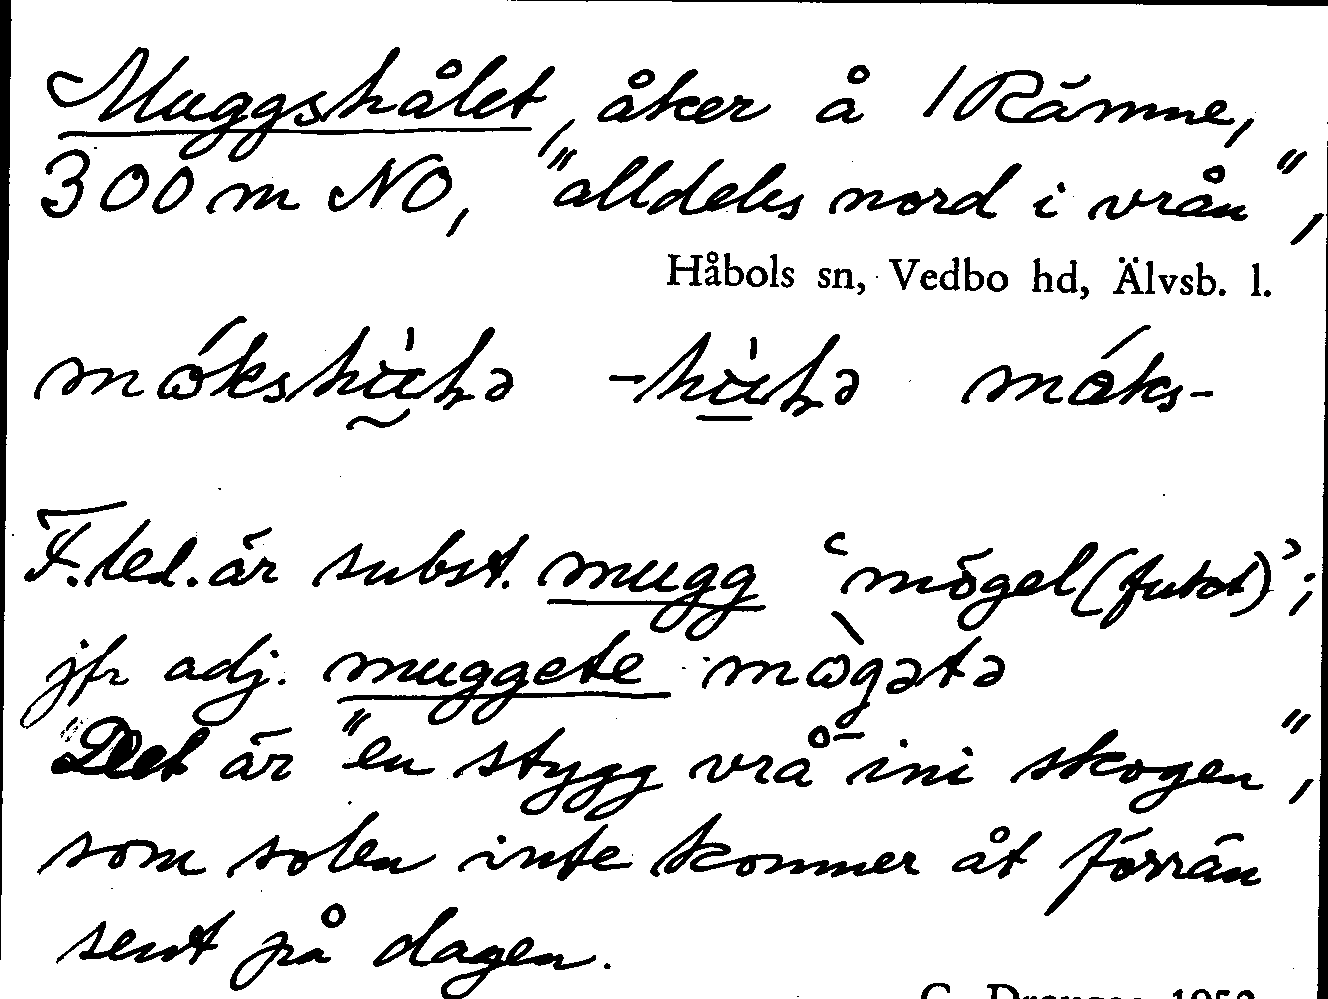 Muggshålet, åker å 1 Rämne,
300 m NO, "alldeles nord i vrån",
Håbols sn, Vedbo hd, Älvsb. l.
F.led. är subst. mugg 'mögel (fukt)';
jfr adj. muggete mògətə
Det är "en stygg vrå ini skogen",
som solen inte kommer åt förrän
sent på dagen.